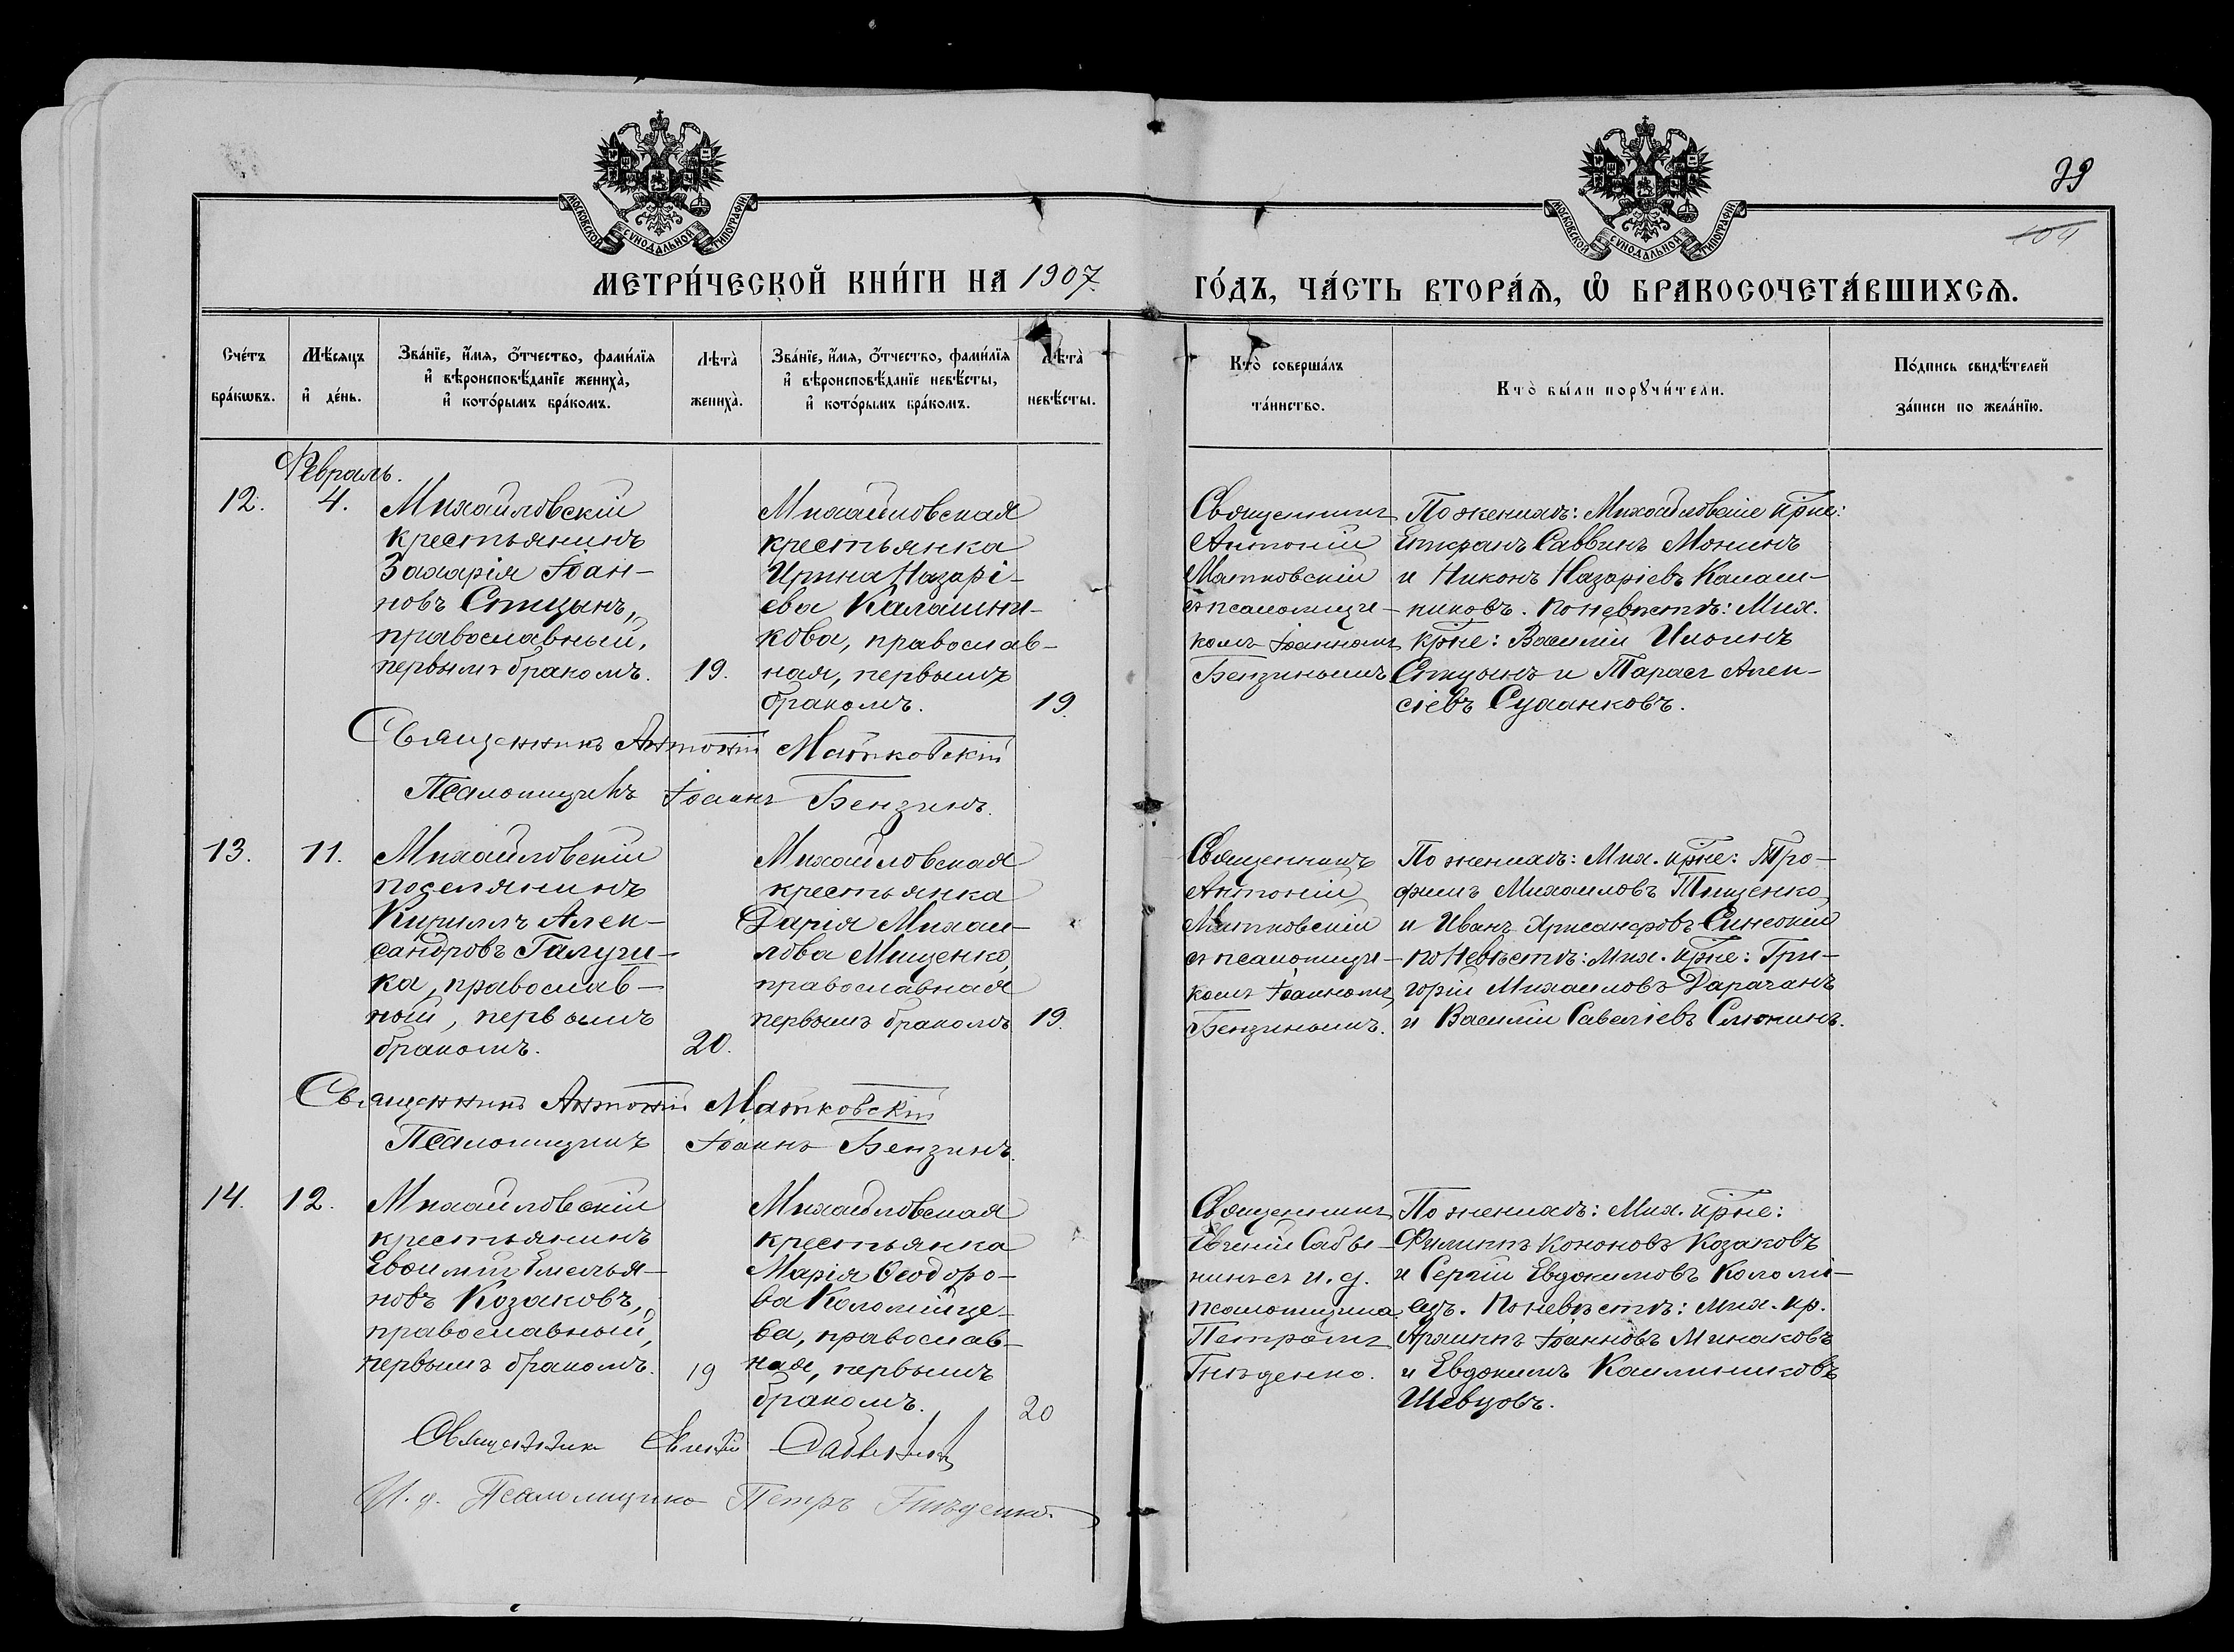 39
104
МОСКОВСКОЙ СѴНОДАЛЬНОЙ ТИПОГРАФІИ
МОСКОВСКОЙ СѴНОДАЛЬНОЙ ТИПОГРАФІИ
МЕТРИ́ЧЕСКОЙ КНИ́ГИ НА 1907.
ГО́ДЪ, ЧА́СТЬ ВТОРА́Ѧ, Ѽ БРАКОСОЧЕТА́ВШИХСѦ.
Сче́тъ бра́кѡвъ.
Мѣ́сяцъ и҆ де́нь.
Зва́нїе, и҆́мя, ѻ҆́тчество, фами́лїя
и҆ вѣроисповѣ́данїе жениха̀,
и҆ кото́рымъ бра́комъ.
Лѣта̀ жениха̀.
Зва́нїе, и҆́мя, ѻ҆́тчество, фами́лїя
и҆ вѣроисповѣ́данїе невѣ́сты,
и҆ кото́рымъ бра́комъ.
Лѣта̀ невѣ́сты.
Кто̀ соверша́лъ
та́инство.
Кто̀ бы́ли порꙋчи́тели.
По́дпись свидѣ́телей
за́писи по жела́нїю.
Февраль.
12.
4.
Михайловскій
крестьянинъ
Захарія Іоан-
новъ Стицынъ,
православный,
первымъ бракомъ.
19.
Михайловская
крестьянка
Ирина Назарі-
ева Калашни-
кова, православ-
ная, первымъ
бракомъ.
19.
Священникъ
Антоній
Матковскій
съ псаломщи-
комъ Іоанномъ
Бензинымъ
По женихѣ: Михайловскіе кр̃не:
Епифанъ Саввинъ Монинъ
и Никонъ Назаріевъ Калаш-
никовъ. По невѣстѣ: Мих.
кр̃не: Василій Ильинъ
Стицынъ и Тарасъ Алек-
сіевъ Суханковъ.
Священникъ Антоній Матковскій
Псаломщикъ Іоаннъ Бензинъ.
13.
11.
Михайловскій
поселянинъ
Кириллъ Алек-
сандровъ Галущ-
ка, православ-
ный, первымъ
бракомъ.
20.
Михайловская
крестьянка
Дарія Михаи-
лова Мищенко,
православная
первымъ бракомъ
19.
Священникъ
Антоній
Матковскій
съ псаломщи-
комъ Іоанномъ
Бензинымъ.
По женихѣ: Мих. кр̃не: Тро-
фимъ Михаиловъ Тищенко
и Иванъ Хрисанфовъ Синскій
по невѣстѣ: Мих. кр̃не: Гри-
горій Михаиловъ Дараганъ
и Василій Савеліевъ Слюнинъ.
Священникъ Антоній Матковскій
Псаломщикъ Іоаннъ Бензинъ.
14.
12.
Михайловскій
крестьянинъ
Евѳимій Емелья-
новъ Козаковъ,
православный,
первымъ бракомъ.
19
Михайловская
крестьянка
Марія Ѳеодоро-
ва Коломійце-
ва, православ-
ная, первымъ
бракомъ.
20
Священникъ
Евгеній Сабы-
нинъ съ и. д.
псаломщика
Петромъ
Гнѣденко.
По женихѣ: Мих. кр̃не:
Филиппъ Кононовъ Козаковъ
и Сергій Евдокимовъ Коломі-
ецъ. По невѣстѣ: Мих. кр.
Архиппъ Іоанновъ Минаковъ
и Евдокимъ Каллиниковъ
Шевцовъ.
Священникъ Евгеній Сабынинъ
И. д. Псаломщика Петръ Гнѣденко.